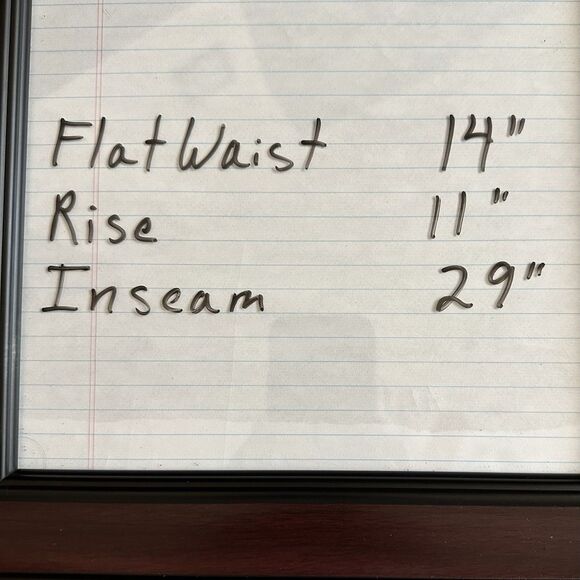 Flat Waist 14"
Rise 11"
Inseam 29"